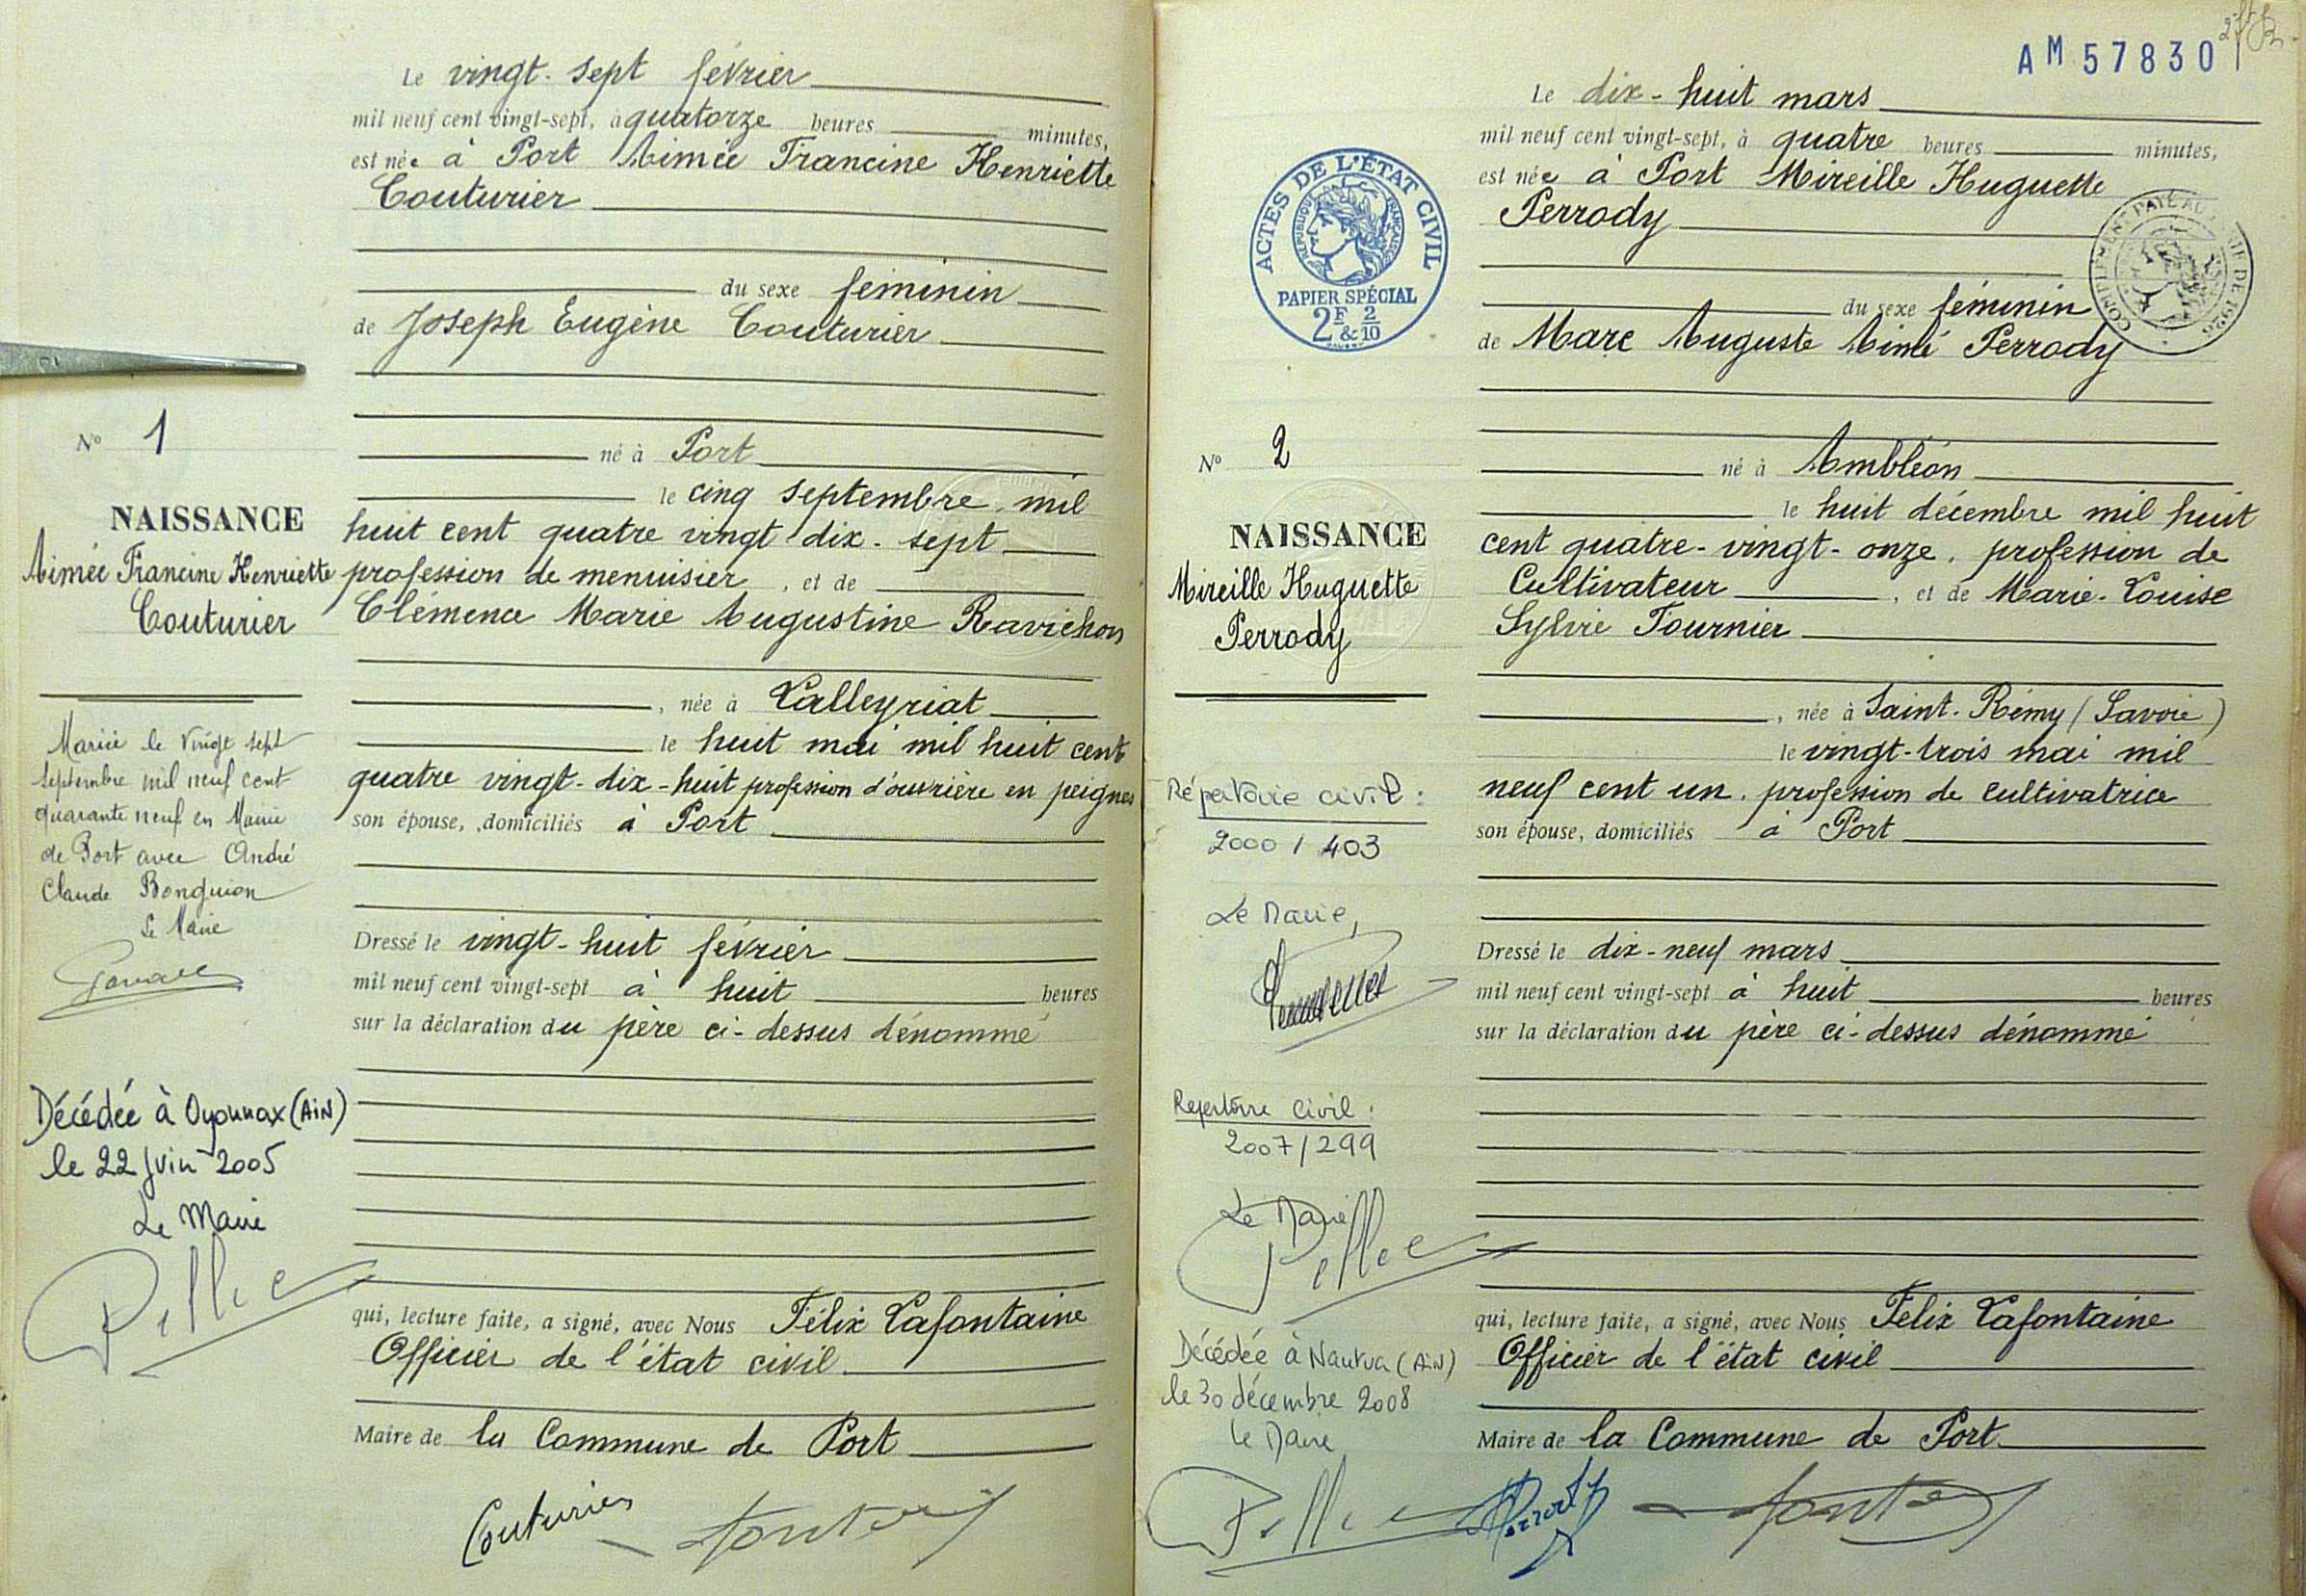 Le vingt-sept février
mil neuf cent vingt-sept, à quatorze heures minutes,
est née à Port Aimée Francine Henriette
Couturier
du sexe féminin
de Joseph Eugène Couturier
né à Port
le cinq septembre mil
huit cent quatre vingt dix-sept
profession de menuisier, et de
Clémence Marie Augustine Ravichon
, née à Lalleyriat
le huit mai mil huit cent
quatre vingt-dix-huit profession d'ouvrière en peignes
son épouse, domiciliés à Port
Dressé le vingt-huit février
mil neuf cent vingt-sept à huit heures
sur la déclaration du père ci-dessus dénommé
qui, lecture faite, a signé, avec Nous Félix Lafontaine
Officier de l'état civil
Maire de la Commune de Port
Couturier
No 1
NAISSANCE
Aimée Francine Henriette
Couturier
Mariée le vingt sept
septembre mil neuf cent
quarante neuf en Mairie
de Port avec André
Claude
Le Maire
Décédée à Oyonnax (AIN)
le 22 juin 2005
Le Maire
AM 57830
Le dix-huit mars
mil neuf cent vingt-sept, à quatre heures minutes,
est née à Port Mireille Huguette
Perrody
du sexe féminin
de Marc Auguste Aimé Perrody
né à Ambléon
le huit décembre mil huit
cent quatre-vingt-onze, profession de
Cultivateur, et de Marie-Louise
Sylvie Tournier
, née à Saint-Rémy (Savoie)
le vingt-trois mai mil
neuf cent un, profession de cultivatrice
son épouse, domiciliés à Port
Dressé le dix-neuf mars
mil neuf cent vingt-sept à huit heures
sur la déclaration du père ci-dessus dénommé
qui, lecture faite, a signé, avec Nous Félix Lafontaine
Officier de l'état civil
Maire de la Commune de Port
ACTES DE L'ÉTAT CIVIL
RÉPUBLIQUE FRANÇAISE
PAPIER SPÉCIAL
2F & 2/10
No 2
NAISSANCE
Mireille Huguette
Perrody
Répertoire civil :
2000 / 403
Le Maire,
Repertoire Civil :
2007/299
Le Maire
Décédée à Nantua (AIN)
le 30 décembre 2008
Le Maire